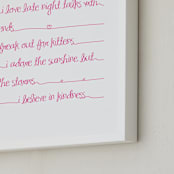 i love late night talks with
reak out for kittens
i adore the sunshine but
the storms
i believe in kindness